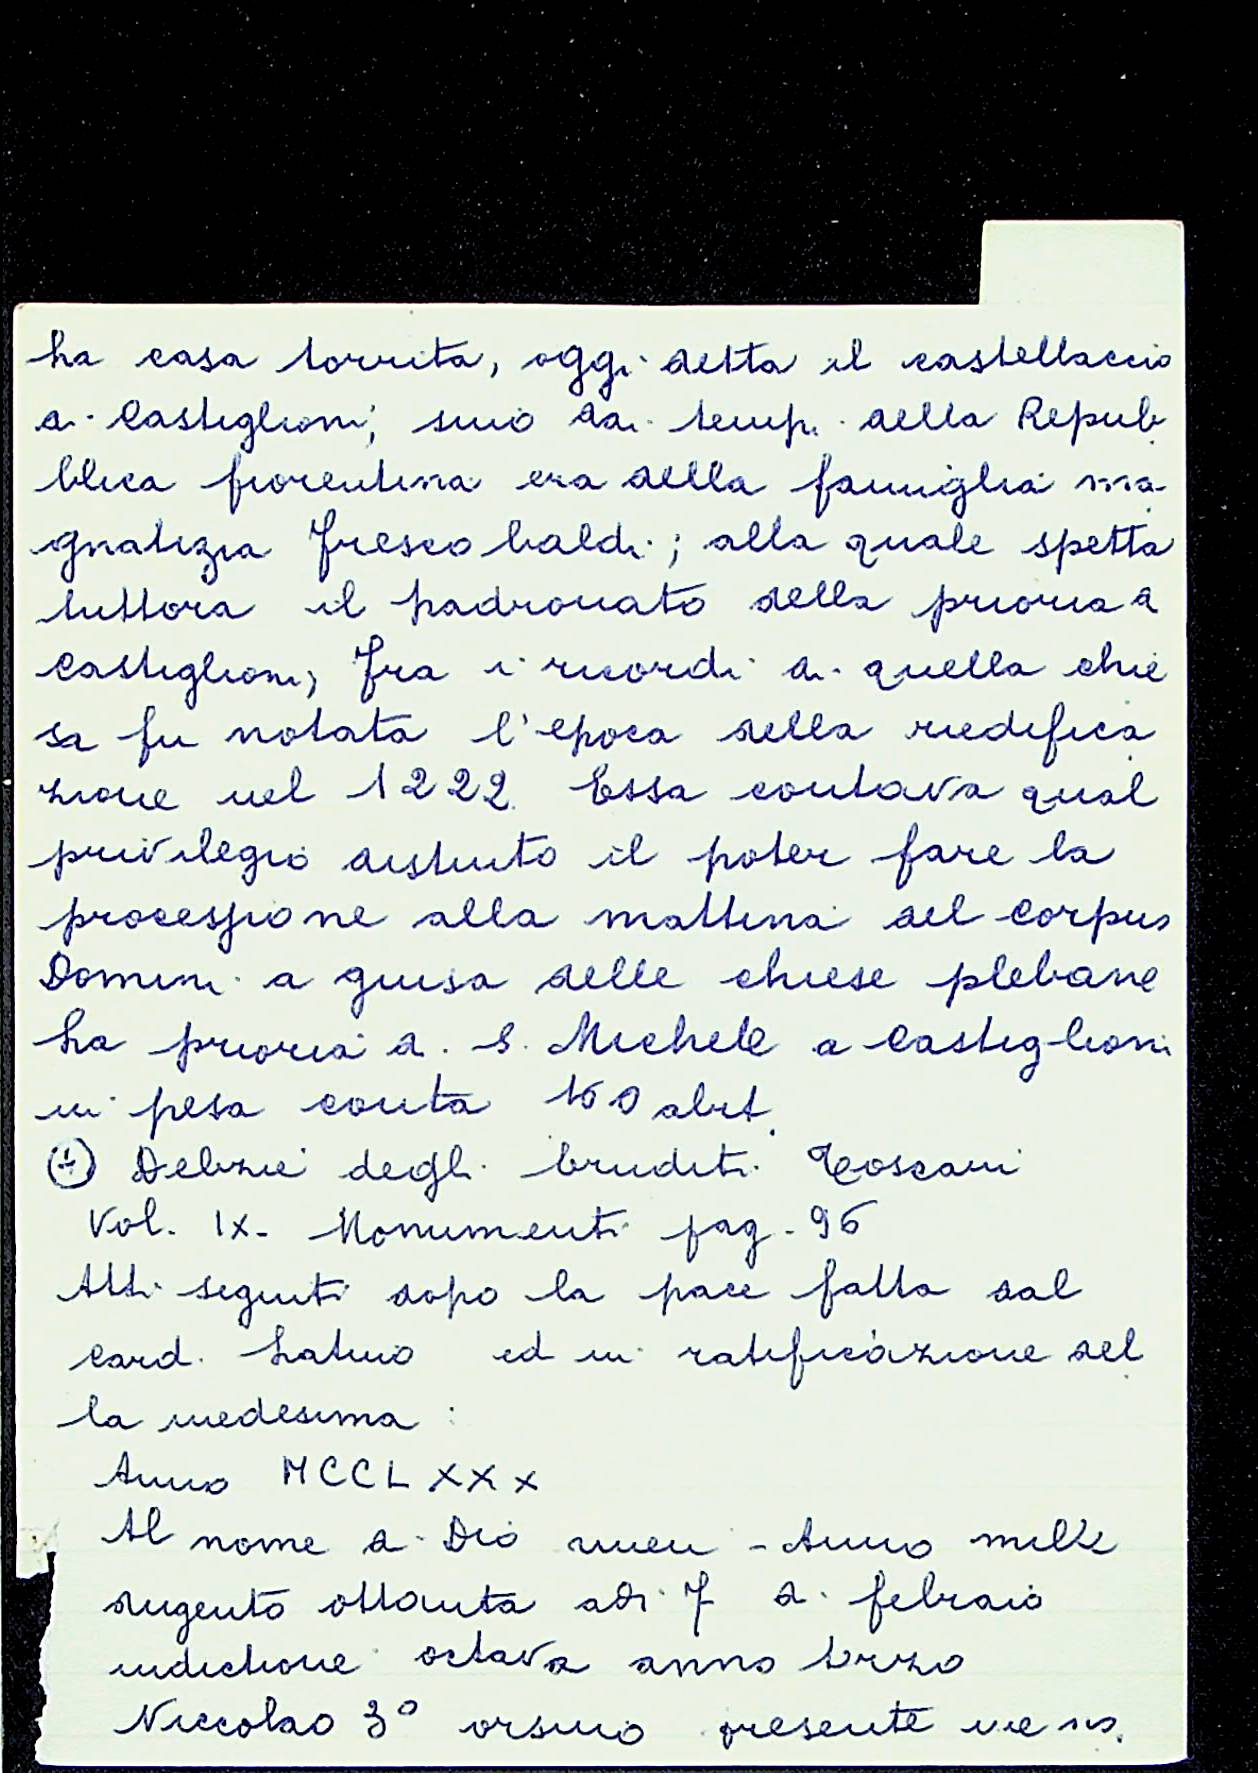 La casa torrita, oggi detta il castellaccio
di Castiglioni, sino dai tempi della Repub
blica fiorentina era della famiglia ma-
gnatizia Frescobaldi; alla quale spetta
tuttora il padronato della prioria di
Castiglioni; Fra i ricordi di quella chie
sa fu notata l'epoca della riedifica
zione nel 1222. Essa contava qual
privilegio distinto il poter fare la
processione alla mattina del Corpus
Domini a guisa delle chiese plebane
La prioria di S. Michele a Castiglioni
in pesa conta 160 abit.
Delizie degli Eruditi Toscani
Vol. IX - Monumenti pag. 96
Atti seguiti dopo la pace fatta dal
Card. Latino ed in ratificazione del
la medesima :
Anno MCCLXXX
Al nome di Dio - Anno mille
dugento ottanta adì 7 di febraio
indictione octava anno terzo
Niccolao 3° orsino presente